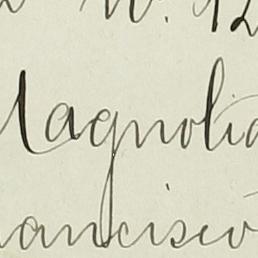 W. 12
Magnolia
ancisco